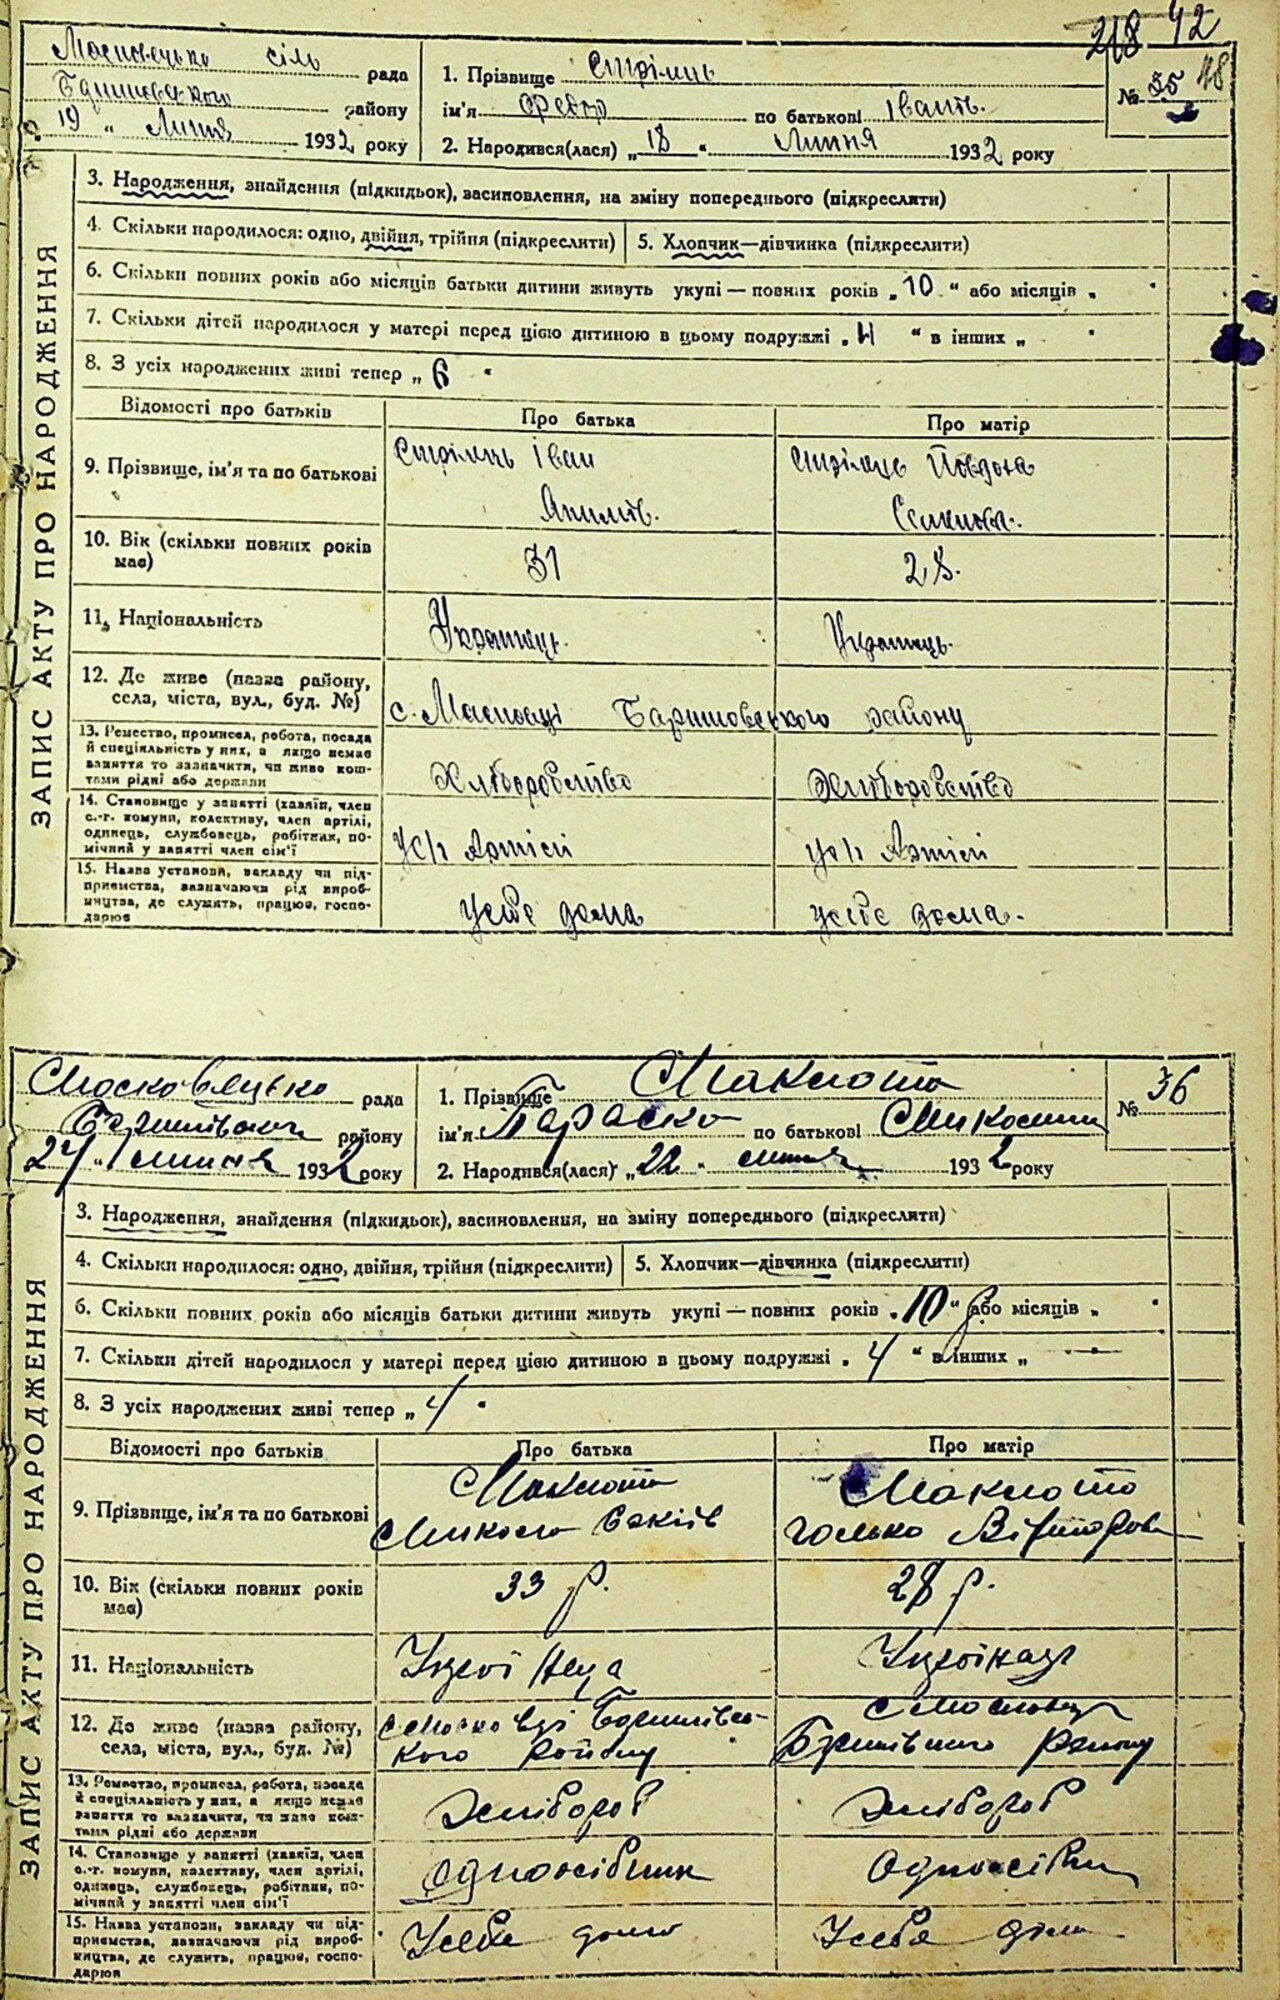 218 42
сіль рада
району
19 " Липня 1932 року
1. Прізвище Стрілець
ім'я Федор по батькові Іванів.
2. Народився(лася) „18 " Липня 1932 року
№ 35 48
ЗАПИС АКТУ ПРО НАРОДЖЕННЯ
3. Народження, знайдення (підкидьок), засиновлення, на зміну попереднього (підкреслити)
4. Скільки народилося: одно, двійня, трійня (підкреслити)
5. Хлопчик—дівчинка (підкреслити)
6. Скільки повних років або місяців батьки дитини живуть укупі — повних років „ 10 " або місяців „ "
7. Скільки дітей народилося у матері перед цією дитиною в цьому подружжі „ 4 " в інших „ "
8. З усіх народжених живі тепер „ 6 "
Відомості про батьків
Про батька
Про матір
9. Прізвище, ім'я та по батькові
Стрілець Іван
Стрілець Йовдоха
10. Вік (скільки повних років
має)
31
28.
11. Національність
Українець.
Українець.
12. Де живе (назва району,
села, міста, вул., буд. №)
с. Масковці Баришовського району
13. Ремество, промисел, робота, посада
й спеціяльність у них, а якщо немає
заняття то зазначити, чи живе кош-
тами рідні або держави
Хліборобство
Хліборобство
14. Становище у занятті (хазяїн, член
с.-г. комуни, колективу, член артілі,
одинець, службовець, робітник, по-
мічний у занятті член сім'ї
у с/г Артілі
у с/г Артілі
15. Назва установи, закладу чи під-
приємства, зазначаючи рід вироб-
ництва, де служить, працює, госпо-
дарює
усебе дома
усебе дома.
Московецько рада
району
24 " липня 1932 року
1. Прізвище Маклюта
ім'я Параска по батькові Миколина
2. Народився(лася) „ 22 " липня 1932 року
№ 36
ЗАПИС АКТУ ПРО НАРОДЖЕННЯ
3. Народження, знайдення (підкидьок), засиновлення, на зміну попереднього (підкреслити)
4. Скільки народилося: одно, двійня, трійня (підкреслити)
5. Хлопчик—дівчинка (підкреслити)
6. Скільки повних років або місяців батьки дитини живуть укупі — повних років „ 10 р " або місяців „ "
7. Скільки дітей народилося у матері перед цією дитиною в цьому подружжі „ 4 " в інших „ — "
8. З усіх народжених живі тепер „ 4 "
Відомості про батьків
Про батька
Про матір
9. Прізвище, ім'я та по батькові
Маклюта
Микола
Маклюта
10. Вік (скільки повних років
має)
33 р.
28 р.
11. Національність
12. Де живе (назва району,
села, міста, вул., буд. №)
с Московці Баришівсь-
кого району
району
13. Ремество, промисел, робота, посада
й спеціяльність у них, а якщо немає
заняття то зазначити, чи живе кош-
тами рідні або держави
Хлібороб
Хлібороб
14. Становище у занятті (хазяїн, член
с.-г. комуни, колективу, член артілі,
одинець, службовець, робітник, по-
мічний у занятті член сім'ї
Одноосібник
15. Назва установи, закладу чи під-
приємства, зазначаючи рід вироб-
ництва, де служить, працює, госпо-
дарює
Усебе дома
Усебе дома